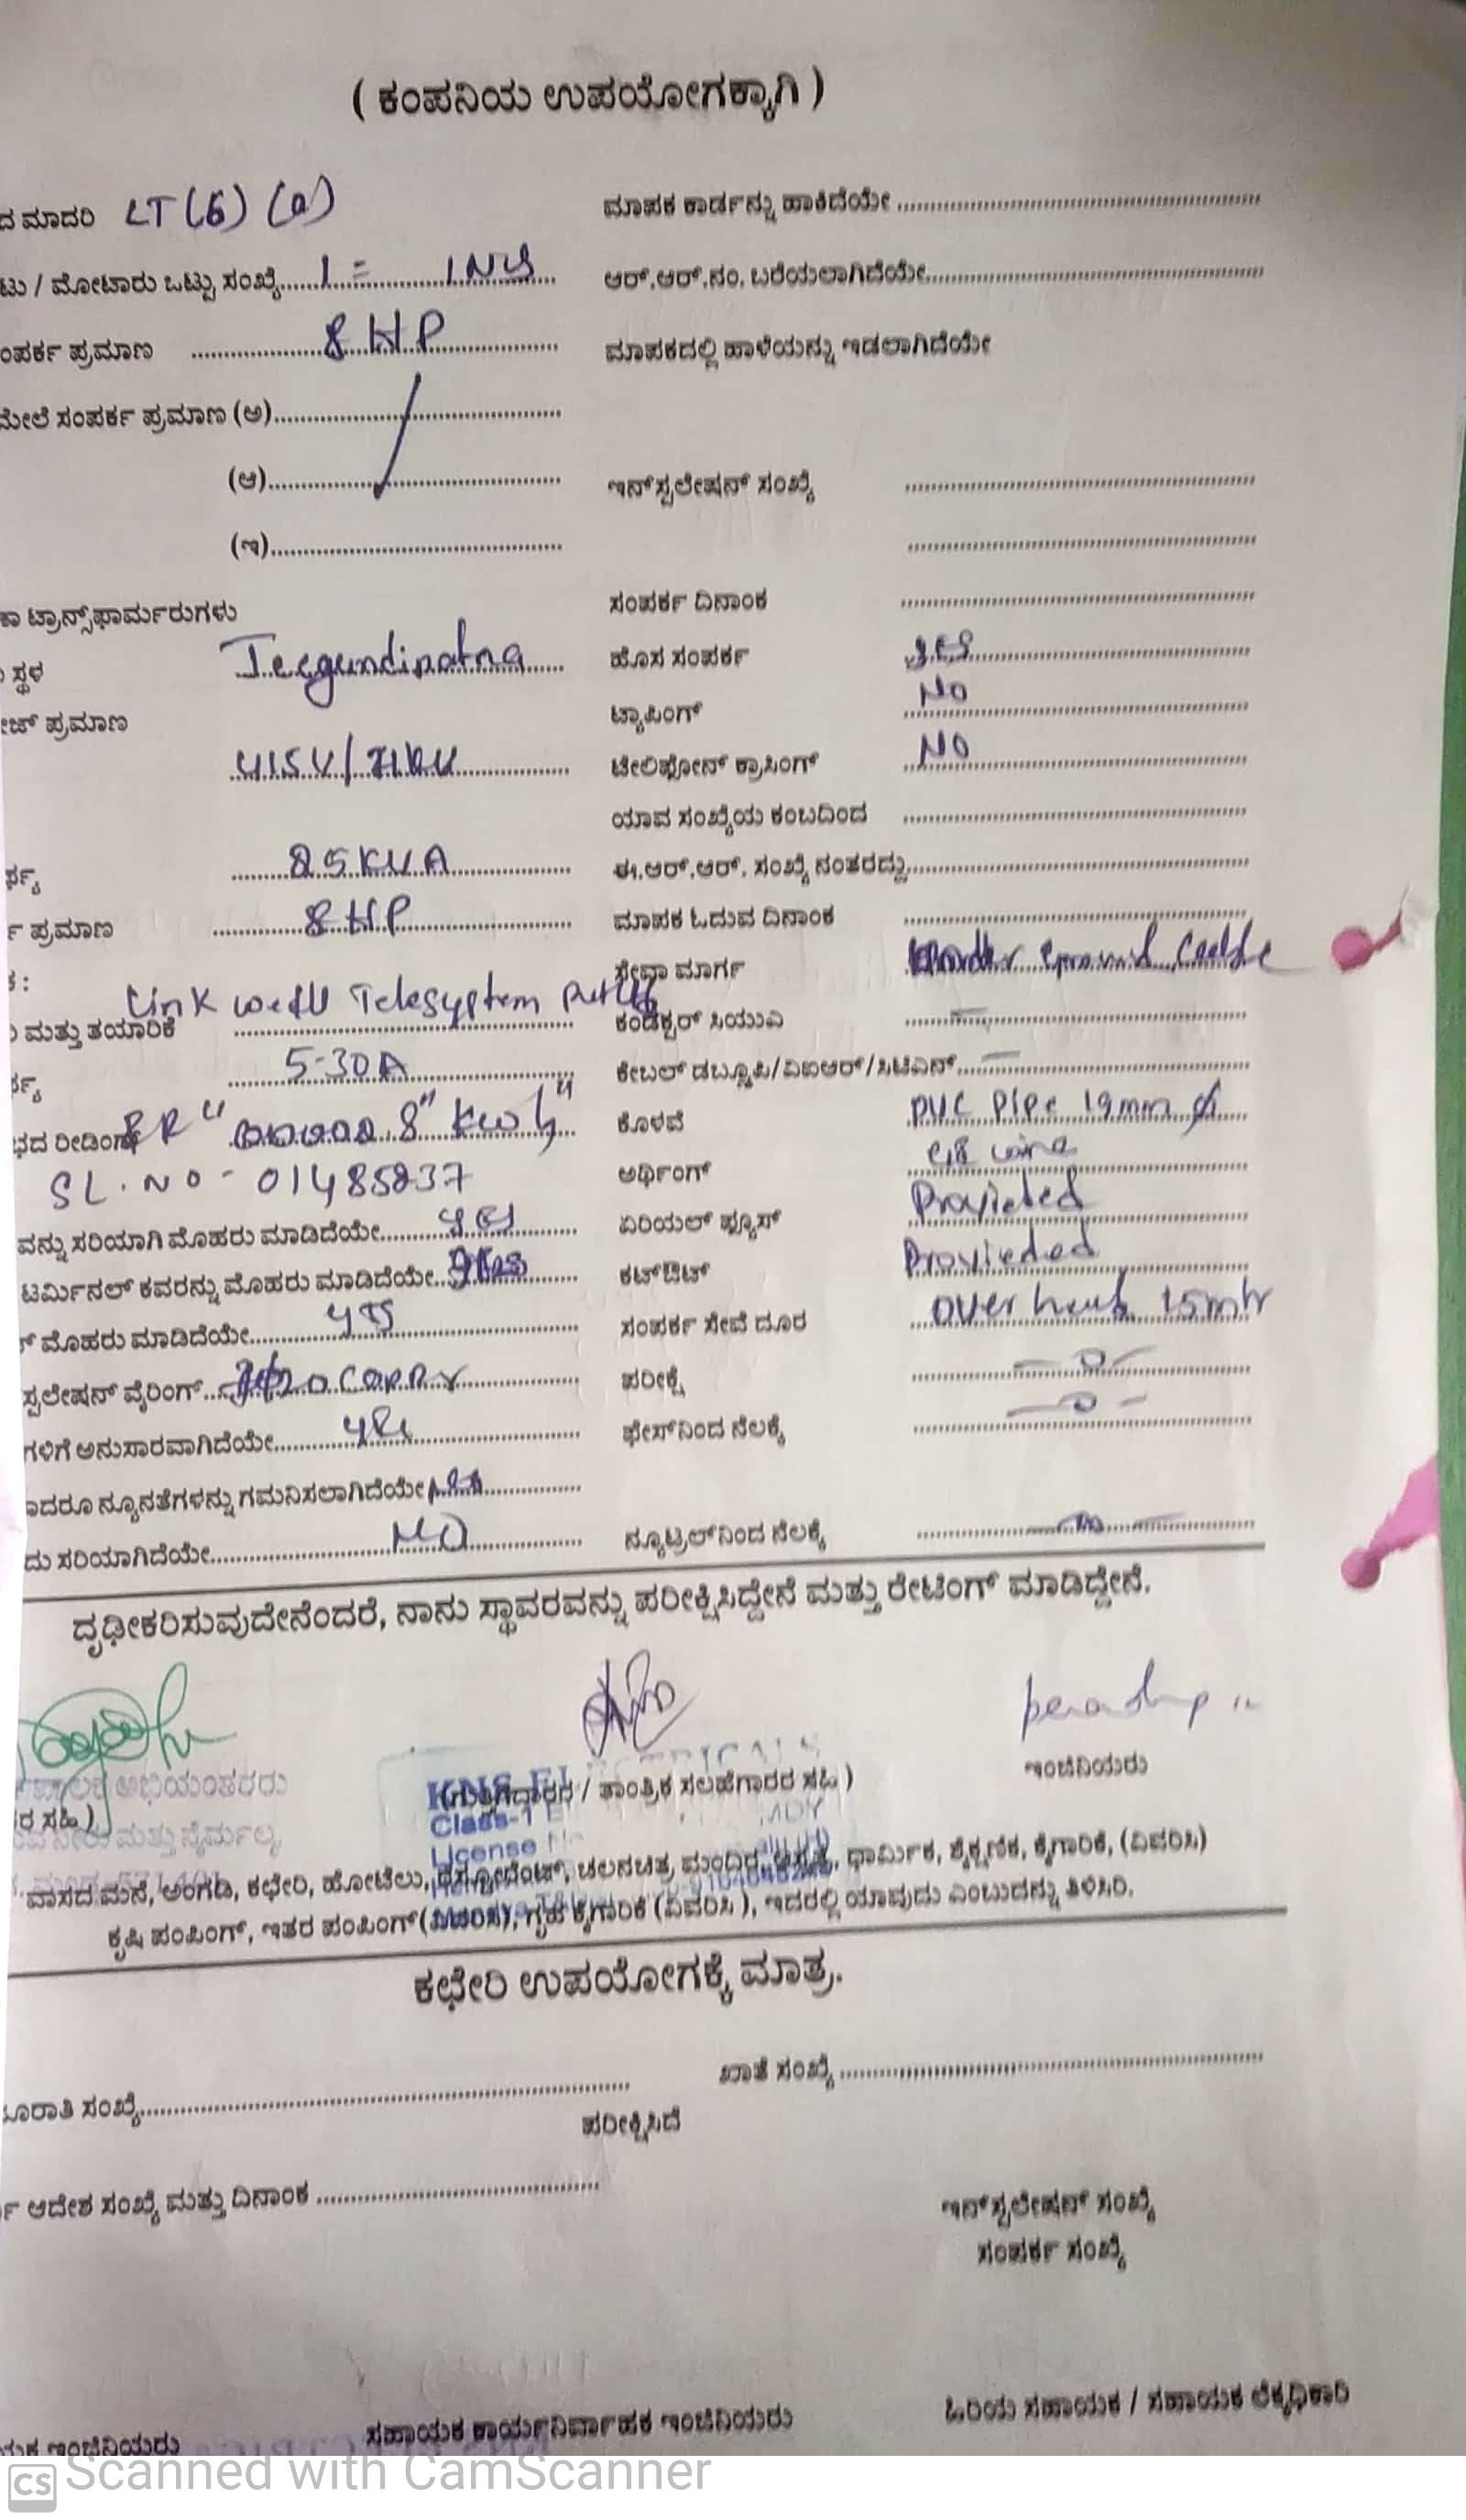 ( ಕಂಪನಿಯ ಉಪಯೋಗಕ್ಕಾಗಿ )
ದ ಮಾದರಿ LT (6) (a) ಮಾಪಕ ಕಾರ್ಡನ್ನು ಹಾಕಿದೆಯೇ
ಟು / ಮೋಟಾರು ಒಟ್ಟು ಸಂಖ್ಯೆ 1 = ಆರ್.ಆರ್.ನಂ. ಬರೆಯಲಾಗಿದೆಯೇ
ಂಪರ್ಕ ಪ್ರಮಾಣ 8 HP ಮಾಪಕದಲ್ಲಿ ಹಾಳೆಯನ್ನು ಇಡಲಾಗಿದೆಯೇ
ಮೇಲೆ ಸಂಪರ್ಕ ಪ್ರಮಾಣ (ಅ)
(ಆ) ಇನ್‌ಸ್ಟಲೇಷನ್ ಸಂಖ್ಯೆ
(ಇ)
ಟ್ರಾನ್ಸ್‌ಫಾರ್ಮರುಗಳು ಸಂಪರ್ಕ ದಿನಾಂಕ
ಸ್ಥಳ ಹೊಸ ಸಂಪರ್ಕ yes
ೇಜ್ ಪ್ರಮಾಣ ಟ್ಯಾಪಿಂಗ್ NO
415V/ ಟೇಲಿಫೋನ್ ಕ್ರಾಸಿಂಗ್ NO
ಯಾವ ಸಂಖ್ಯೆಯ ಕಂಬದಿಂದ
25 KVA ಈ.ಆರ್.ಆರ್. ಸಂಖ್ಯೆ ನಂತರದ್ದು
ಪ್ರಮಾಣ 8 HP ಮಾಪಕ ಓದುವ ದಿನಾಂಕ
ಸೇವಾ ಮಾರ್ಗ
Link Telesystem
ಮತ್ತು ತಯಾರಿಕೆ ಕಂಡಕ್ಟರ್ ಸಿಯುಎ
5-30A ಕೇಬಲ್ ಡಬ್ಲೂಪಿ/ವಿಐಆರ್/ಸಿಟಿಎನ್
ಭದ ರೀಡಿಂಗ್ ಕೊಳವೆ PVC Pipe 19mm
SL. NO - 01485237 ಅರ್ಥಿಂಗ್
ವನ್ನು ಸರಿಯಾಗಿ ಮೊಹರು ಮಾಡಿದೆಯೇ yes ಏರಿಯಲ್ ಫ್ಯೂಸ್ Provieded
ಟರ್ಮಿನಲ್ ಕವರನ್ನು ಮೊಹರು ಮಾಡಿದೆಯೇ yes ಕಟ್‌ಔಟ್ Provieded
ಮೊಹರು ಮಾಡಿದೆಯೇ yes ಸಂಪರ್ಕ ಸೇವೆ ದೂರ over 15mtr
ಸ್ಟಲೇಷನ್ ವೈರಿಂಗ್ ಪರೀಕ್ಷೆ
ಗಳಿಗೆ ಅನುಸಾರವಾಗಿದೆಯೇ yes ಫೇಸ್‌ನಿಂದ ನೆಲಕ್ಕೆ
ಾದರೂ ನ್ಯೂನತೆಗಳನ್ನು ಗಮನಿಸಲಾಗಿದೆಯೇ
ದು ಸರಿಯಾಗಿದೆಯೇ NO ನ್ಯೂಟ್ರಲ್‌ನಿಂದ ನೆಲಕ್ಕೆ
ದೃಢೀಕರಿಸುವುದೇನೆಂದರೆ, ನಾನು ಸ್ಥಾವರವನ್ನು ಪರೀಕ್ಷಿಸಿದ್ದೇನೆ ಮತ್ತು ರೇಟಿಂಗ್ ಮಾಡಿದ್ದೇನೆ.
ಇಂಜಿನಿಯರು
ಅಭಿಯಂತರರು
(ಗುತ್ತಿಗೆದಾರರ / ತಾಂತ್ರಿಕ ಸಲಹೆಗಾರರ ಸಹಿ )
ರ ಸಹಿ )
Class-1
License
ಮತ್ತು ನೈರ್ಮಲ್ಯ
ವಾಸದ ಮನೆ, ಅಂಗಡಿ, ಕಛೇರಿ, ಹೋಟೆಲು, ರೆಸ್ಟೋರೆಂಟ್, ಚಲನಚಿತ್ರ ಮಂದಿರ, ಆಸ್ಪತ್ರೆ, ಧಾರ್ಮಿಕ, ಶೈಕ್ಷಣಿಕ, ಕೈಗಾರಿಕೆ, (ವಿವರಿಸಿ)
ಕೃಷಿ ಪಂಪಿಂಗ್, ಇತರ ಪಂಪಿಂಗ್ (ವಿವರಿಸಿ), ಗೃಹ ಕೈಗಾರಿಕೆ (ವಿವರಿಸಿ ), ಇದರಲ್ಲಿ ಯಾವುದು ಎಂಬುದನ್ನು ತಿಳಿಸಿರಿ.
ಕಛೇರಿ ಉಪಯೋಗಕ್ಕೆ ಮಾತ್ರ.
ಖಾತೆ ಸಂಖ್ಯೆ
ೂರಾತಿ ಸಂಖ್ಯೆ
ಪರೀಕ್ಷಿಸಿದೆ
ಆದೇಶ ಸಂಖ್ಯೆ ಮತ್ತು ದಿನಾಂಕ
ಇನ್‌ಸ್ಟಲೇಷನ್ ಸಂಖ್ಯೆ
ಸಂಪರ್ಕ ಸಂಖ್ಯೆ
ಯಕ ಇಂಜಿನಿಯರು ಸಹಾಯಕ ಕಾರ್ಯನಿರ್ವಾಹಕ ಇಂಜಿನಿಯರು ಹಿರಿಯ ಸಹಾಯಕ / ಸಹಾಯಕ ಲೆಕ್ಕಧಿಕಾರಿ
CS Scanned with CamScanner